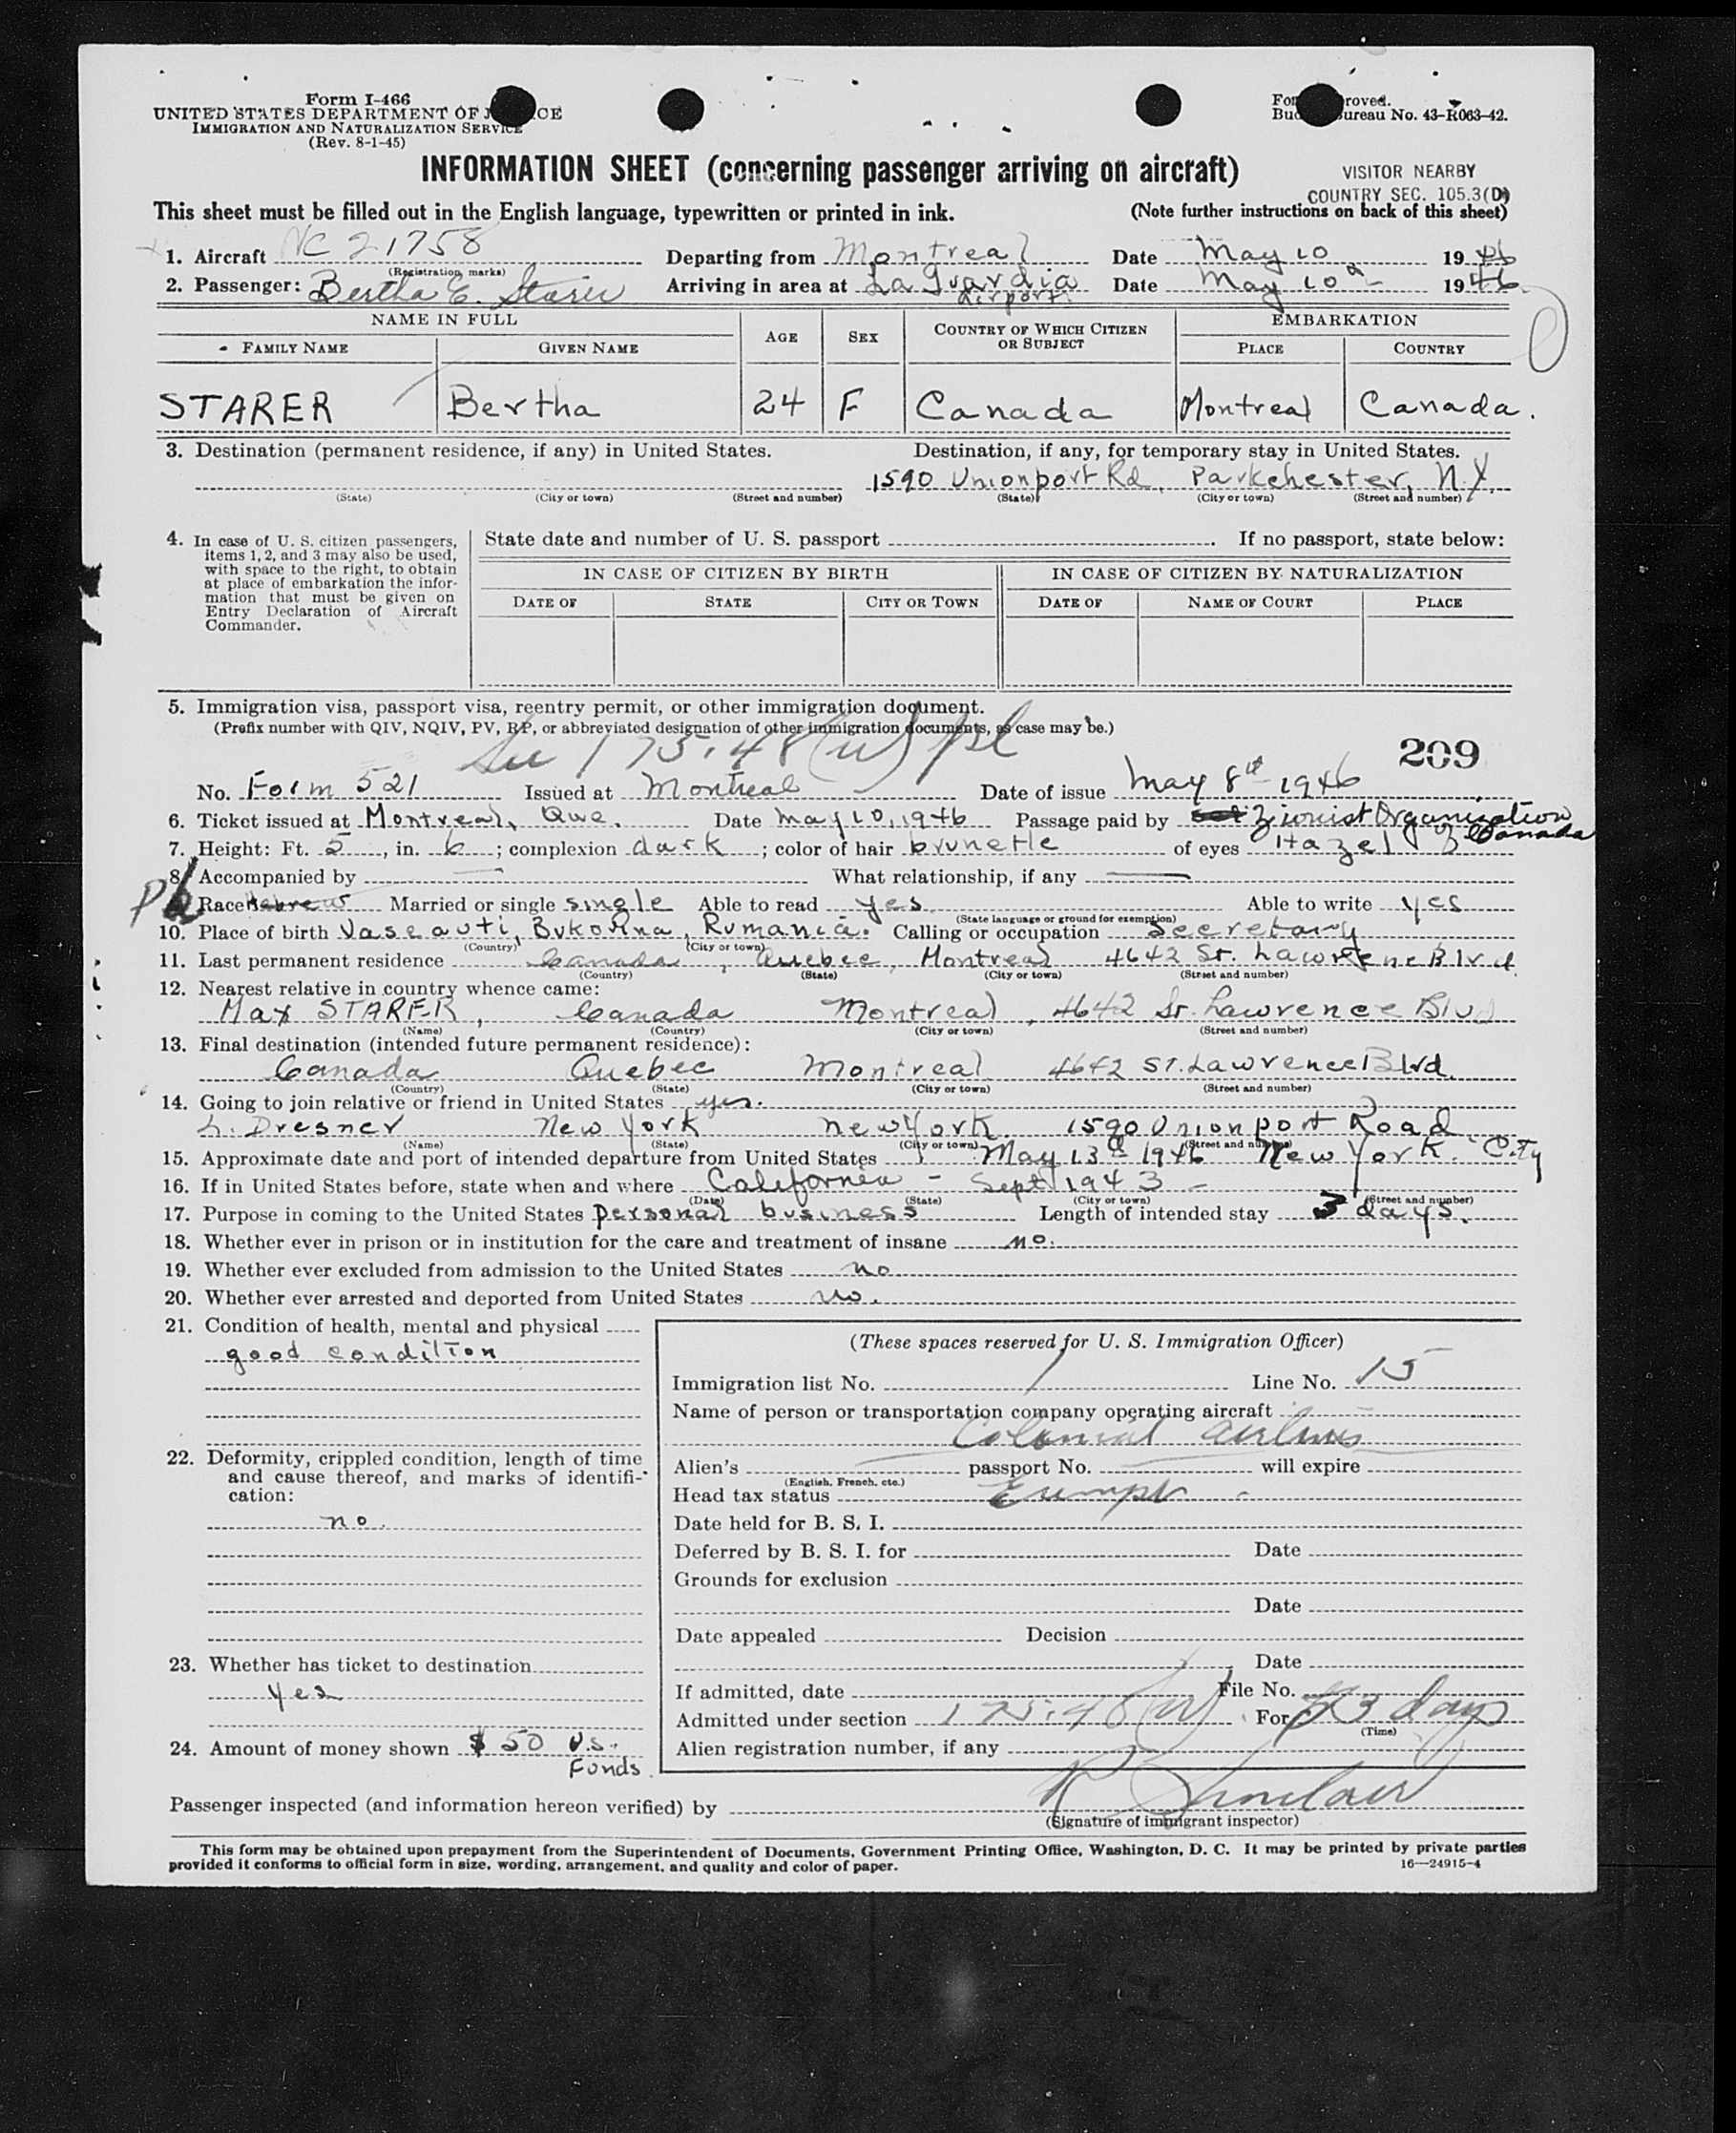 Form I-466
UNITED STATES DEPARTMENT OF J CE
IMMIGRATION AND NATURALIZATION SERVICE
(Rev. 8-1-45)
Fo roved.
Bud ureau No. 43-R063-42.
INFORMATION SHEET (concerning passenger arriving on aircraft)
VISITOR NEARBY
COUNTRY SEC. 105.3(D)
This sheet must be filled out in the English language, typewritten or printed in ink. (Note further instructions on back of this sheet)
1. Aircraft NC 21758 Departing from Montreal Date May 10 1946
(Registration marks)
2. Passenger: Bertha E. Starer Arriving in area at La Guardia Airport Date May 10th 1946
NAME IN FULL AGE SEX COUNTRY OF WHICH CITIZEN OR SUBJECT EMBARKATION
FAMILY NAME GIVEN NAME PLACE COUNTRY
STARER Bertha 24 F Canada Montreal Canada.
3. Destination (permanent residence, if any) in United States. Destination, if any, for temporary stay in United States.
1590 Unionport Rd, Parkchester, N.Y.
(State) (City or town) (Street and number) (State) (City or town) (Street and number)
4. In case of U. S. citizen passengers, items 1, 2, and 3 may also be used, with space to the right, to obtain at place of embarkation the information that must be given on Entry Declaration of Aircraft Commander.
State date and number of U. S. passport . If no passport, state below:
IN CASE OF CITIZEN BY BIRTH IN CASE OF CITIZEN BY NATURALIZATION
DATE OF STATE CITY OR TOWN DATE OF NAME OF COURT PLACE
5. Immigration visa, passport visa, reentry permit, or other immigration document.
(Prefix number with QIV, NQIV, PV, RP, or abbreviated designation of other immigration documents, as case may be.)
175.48(w)
209
No. Form 521 Issued at Montreal Date of issue May 8th 1946
6. Ticket issued at Montreal, Que. Date May 10, 1946 Passage paid by Zionist Organization of Canada
7. Height: Ft. 5, in. 6; complexion dark; color of hair brunette of eyes Hazel
8. Accompanied by — What relationship, if any —
9. Race Hebrew Married or single single Able to read yes Able to write yes
(State language or ground for exemption)
10. Place of birth Vascauti, Bukovina, Rumania. Calling or occupation Secretary
(Country) (City or town)
11. Last permanent residence Canada, Quebec, Montreal 4642 St. Lawrence Blvd.
(Country) (State) (City or town) (Street and number)
12. Nearest relative in country whence came:
Max STARER, Canada Montreal, 4642 St. Lawrence Blvd
(Name) (Country) (City or town) (Street and number)
13. Final destination (intended future permanent residence):
Canada Quebec Montreal 4642 St. Lawrence Blvd.
(Country) (State) (City or town) (Street and number)
14. Going to join relative or friend in United States yes.
L. Dresner New York New York 1590 Unionport Road
(Name) (State) (City or town) (Street and number)
15. Approximate date and port of intended departure from United States May 13th 1946 New York City
16. If in United States before, state when and where California - Sept 1943 -
(Date) (State) (City or town) (Street and number)
17. Purpose in coming to the United States personal business Length of intended stay 3 days.
18. Whether ever in prison or in institution for the care and treatment of insane no.
19. Whether ever excluded from admission to the United States no
20. Whether ever arrested and deported from United States no.
21. Condition of health, mental and physical
good condition
22. Deformity, crippled condition, length of time and cause thereof, and marks of identification:
no.
23. Whether has ticket to destination
Yes
24. Amount of money shown $50 U.S. Funds.
(These spaces reserved for U. S. Immigration Officer)
Immigration list No. 1 Line No. 15
Name of person or transportation company operating aircraft
Colonial Airlines
Alien's passport No. will expire
(English, French, etc.)
Head tax status Exempt
Date held for B. S. I.
Deferred by B. S. I. for Date
Grounds for exclusion
Date
Date appealed Decision
Date
If admitted, date File No.
Admitted under section 175.48(w) For 3 days
(Time)
Alien registration number, if any
Passenger inspected (and information hereon verified) by R Sinclair
(Signature of immigrant inspector)
This form may be obtained upon prepayment from the Superintendent of Documents, Government Printing Office, Washington, D. C. It may be printed by private parties
provided it conforms to official form in size, wording, arrangement, and quality and color of paper. 16—24915-4